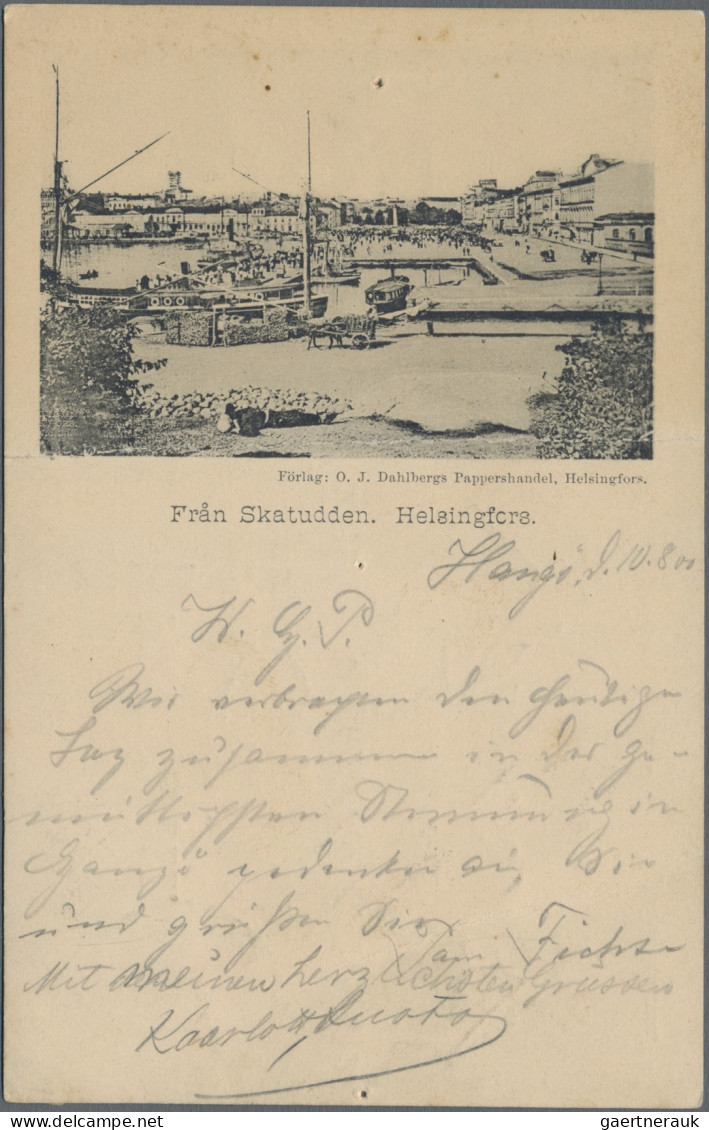 Förlag: O. J. Dahlbergs Pappershandel, Helsingfors.
Från Skatudden. Helsingfors.
Hangö, d. 10. 8 00
W. G. P.
Wir verbrachten den heutigen
Tag zusammen in der ge-
müthlichsten Stimmung in
Hangö gedenken an Sie
und grüßen Sie
Fam. Fichte
Mit meinen herzlichsten Grüssen
Kaarlo
DELCAMPE.NET
gaertnerauk